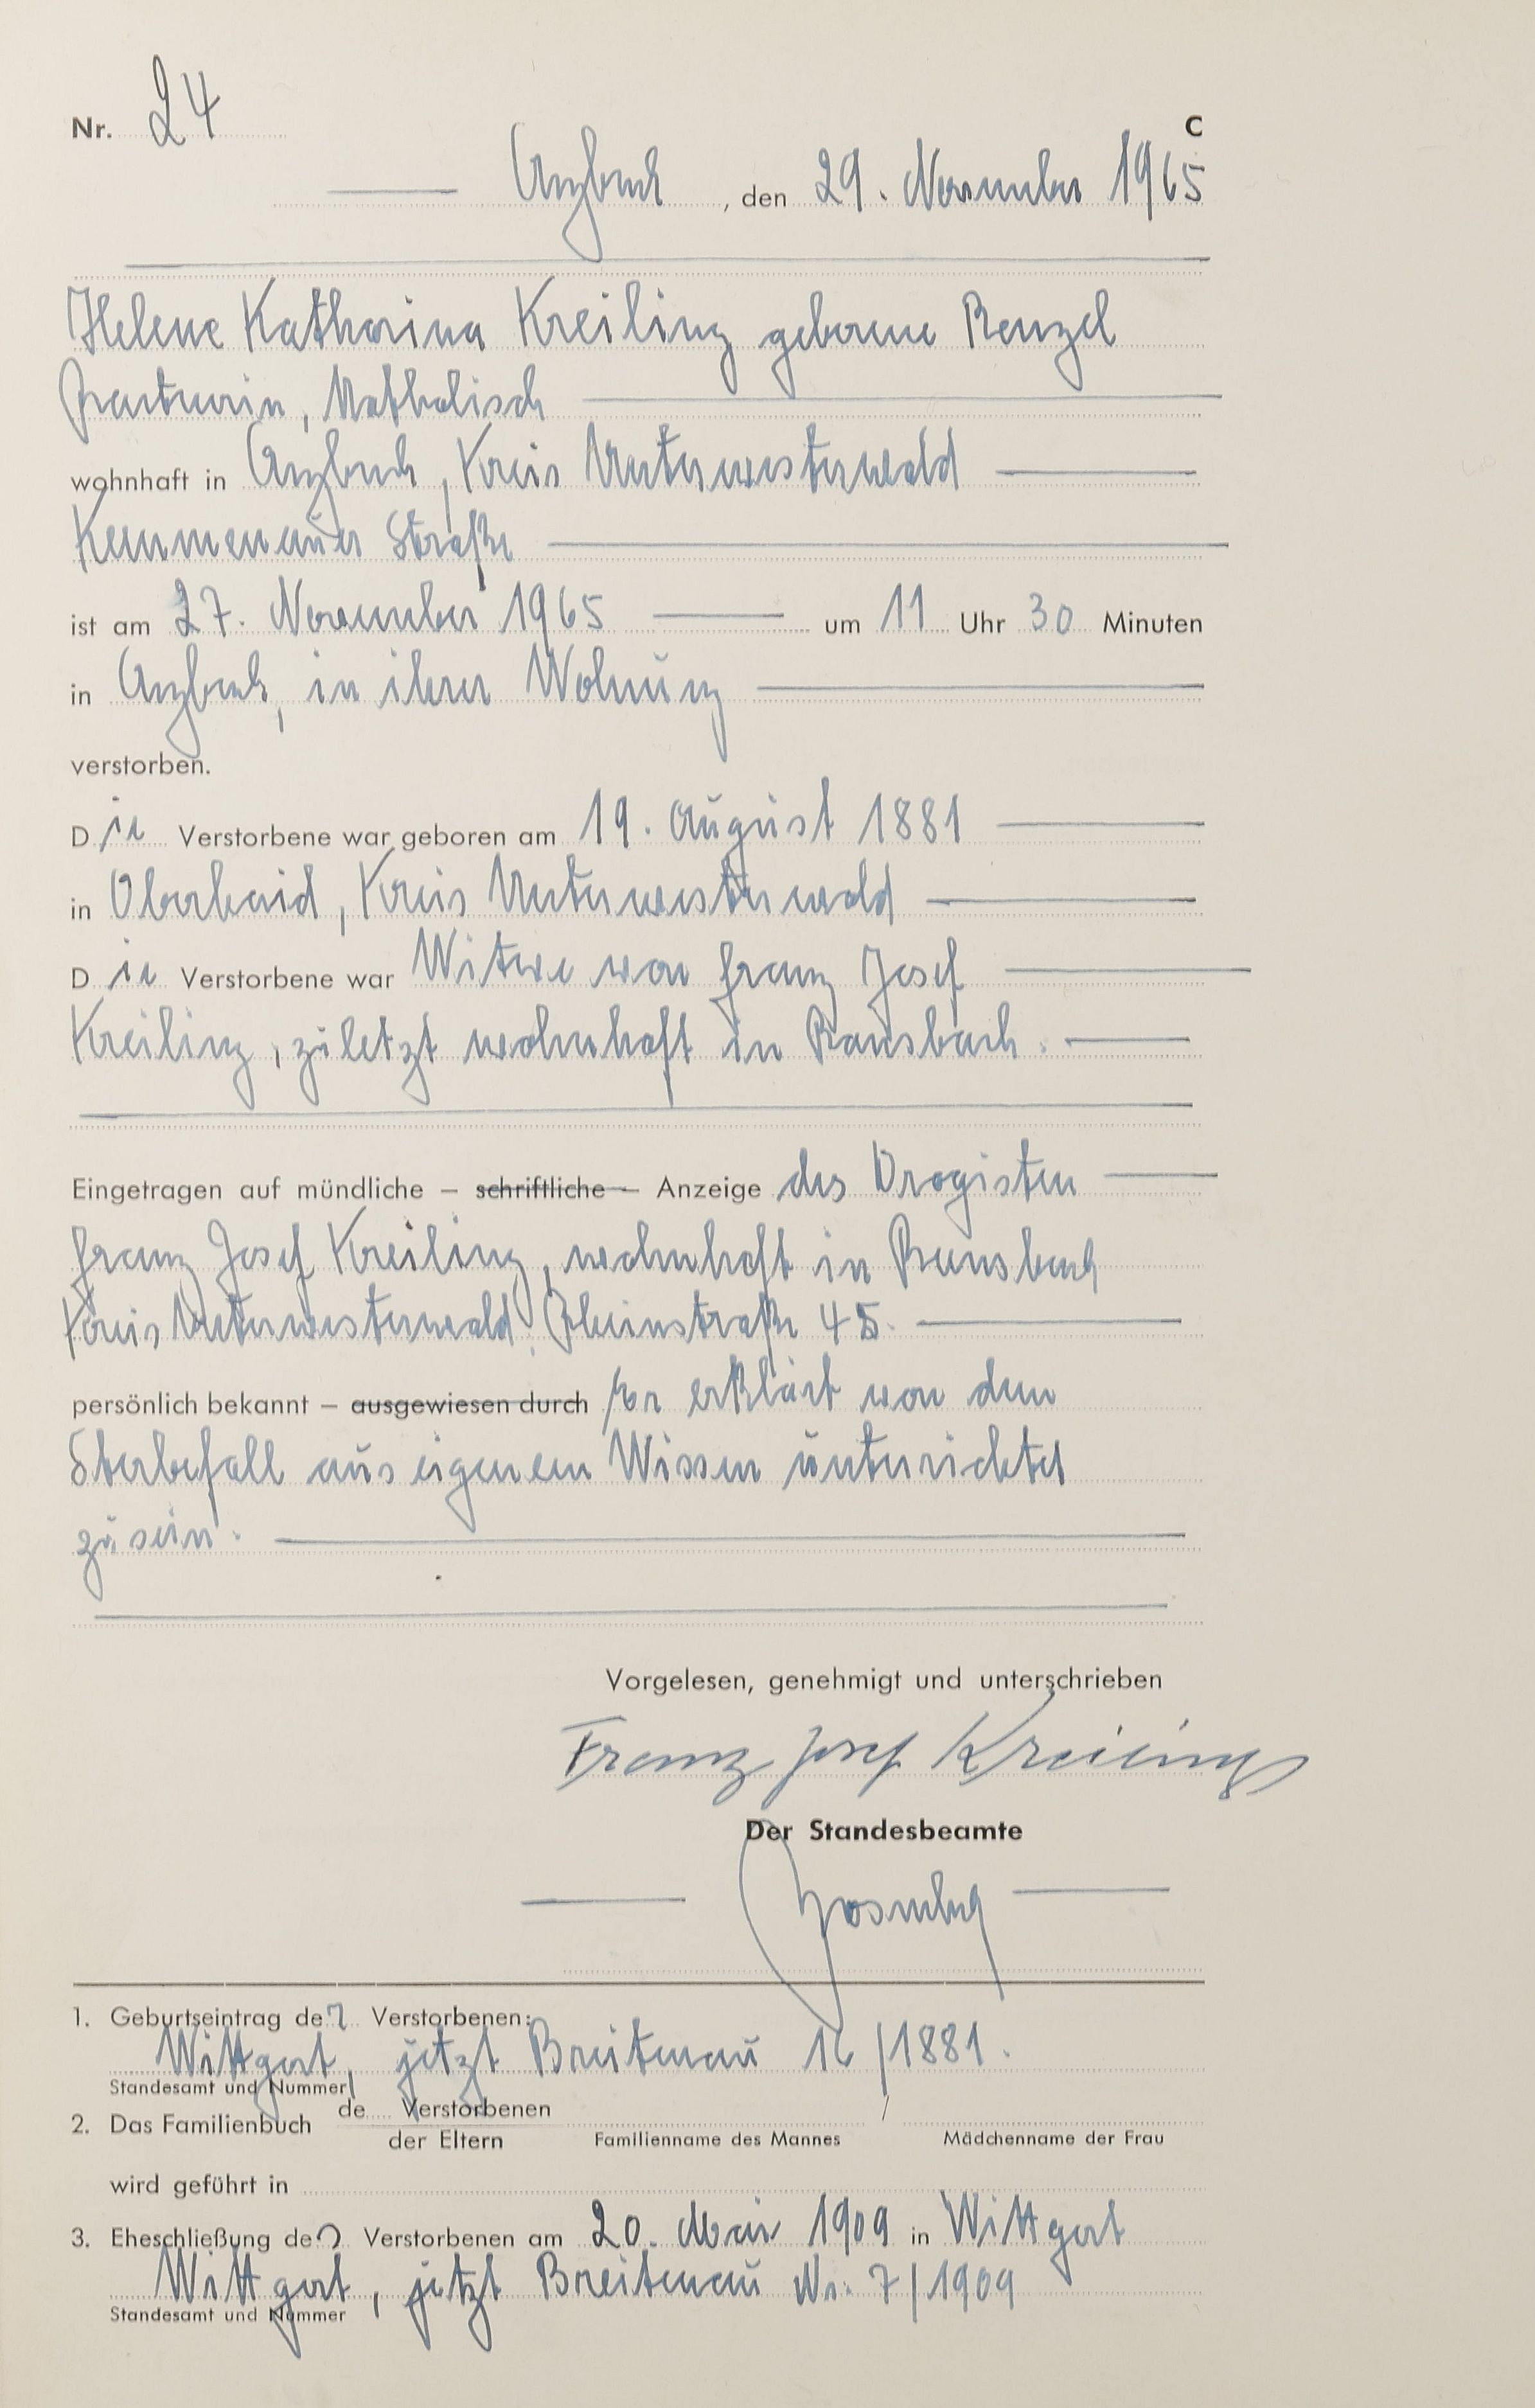 Nr. 24 C
Arzbach, den 29. November 1965
Helene Katharina Kreiling geborene Renzel
Rentnerin, katholisch
wohnhaft in Arzbach, Kreis Unterwesterwald
Kemmenauer Straße
ist am 27. November 1965 um 11 Uhr 30 Minuten
in Arzbach, in ihrer Wohnung
verstorben.
Die Verstorbene war geboren am 19. August 1881
in Oberhaid, Kreis Unterwesterwald
Die Verstorbene war Witwe von Franz Josef
Kreiling, zuletzt wohnhaft in Ransbach.
Eingetragen auf mündliche – schriftliche – Anzeige des Drogisten
Franz Josef Kreiling, wohnhaft in Ransbach
Kreis Unterwesterwald, Rheinstraße 45.
persönlich bekannt – ausgewiesen durch Er erklärt von dem
Sterbefall aus eigenem Wissen unterrichtet
zu sein.
Vorgelesen, genehmigt und unterschrieben
Franz Josef Kreiling
Der Standesbeamte
1. Geburtseintrag der Verstorbenen:
Wittgert, jetzt Breitenau 16/1881.
Standesamt und Nummer
de Verstorbenen
2. Das Familienbuch
der Eltern Familienname des Mannes Mädchenname der Frau
wird geführt in
3. Eheschließung der Verstorbenen am 20. Mai 1909 in Wittgert
Wittgert, jetzt Breitenau Nr. 7/1909
Standesamt und Nummer